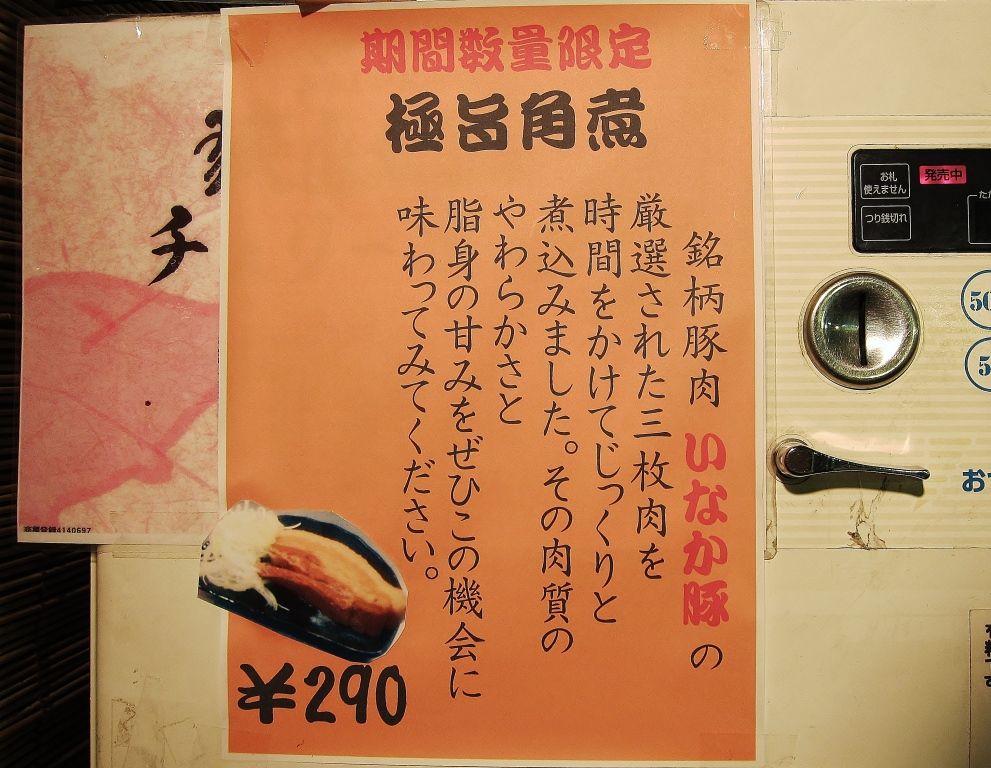 期間数量限定
極旨角煮
銘柄豚肉 いなか豚の
厳選された三枚肉を
時間をかけてじっくりと
煮込みました。その肉質の
やわらかさと
脂身の甘みをぜひこの機会に
味わってみてください。
¥290
チ
商標登録4140697
お札
使えません
発売中
つり銭切れ
た
50
5
お